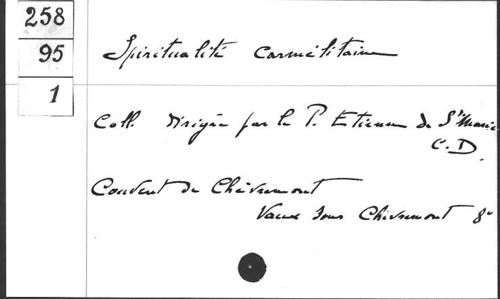 258
95
1
Spiritualité carmélitaine
Coll. dirigée par le P. Etienne de Ste Marie
C. D.
Couvent de Chèvremont
Vaux sous Chèvremont 8°